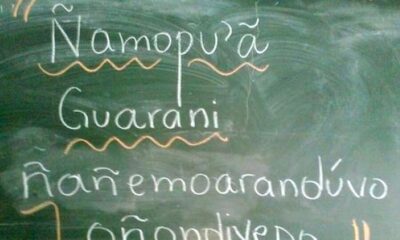 "Ñamopu'ã
Guarani
ñañemoarandúvo
oñondivepa"